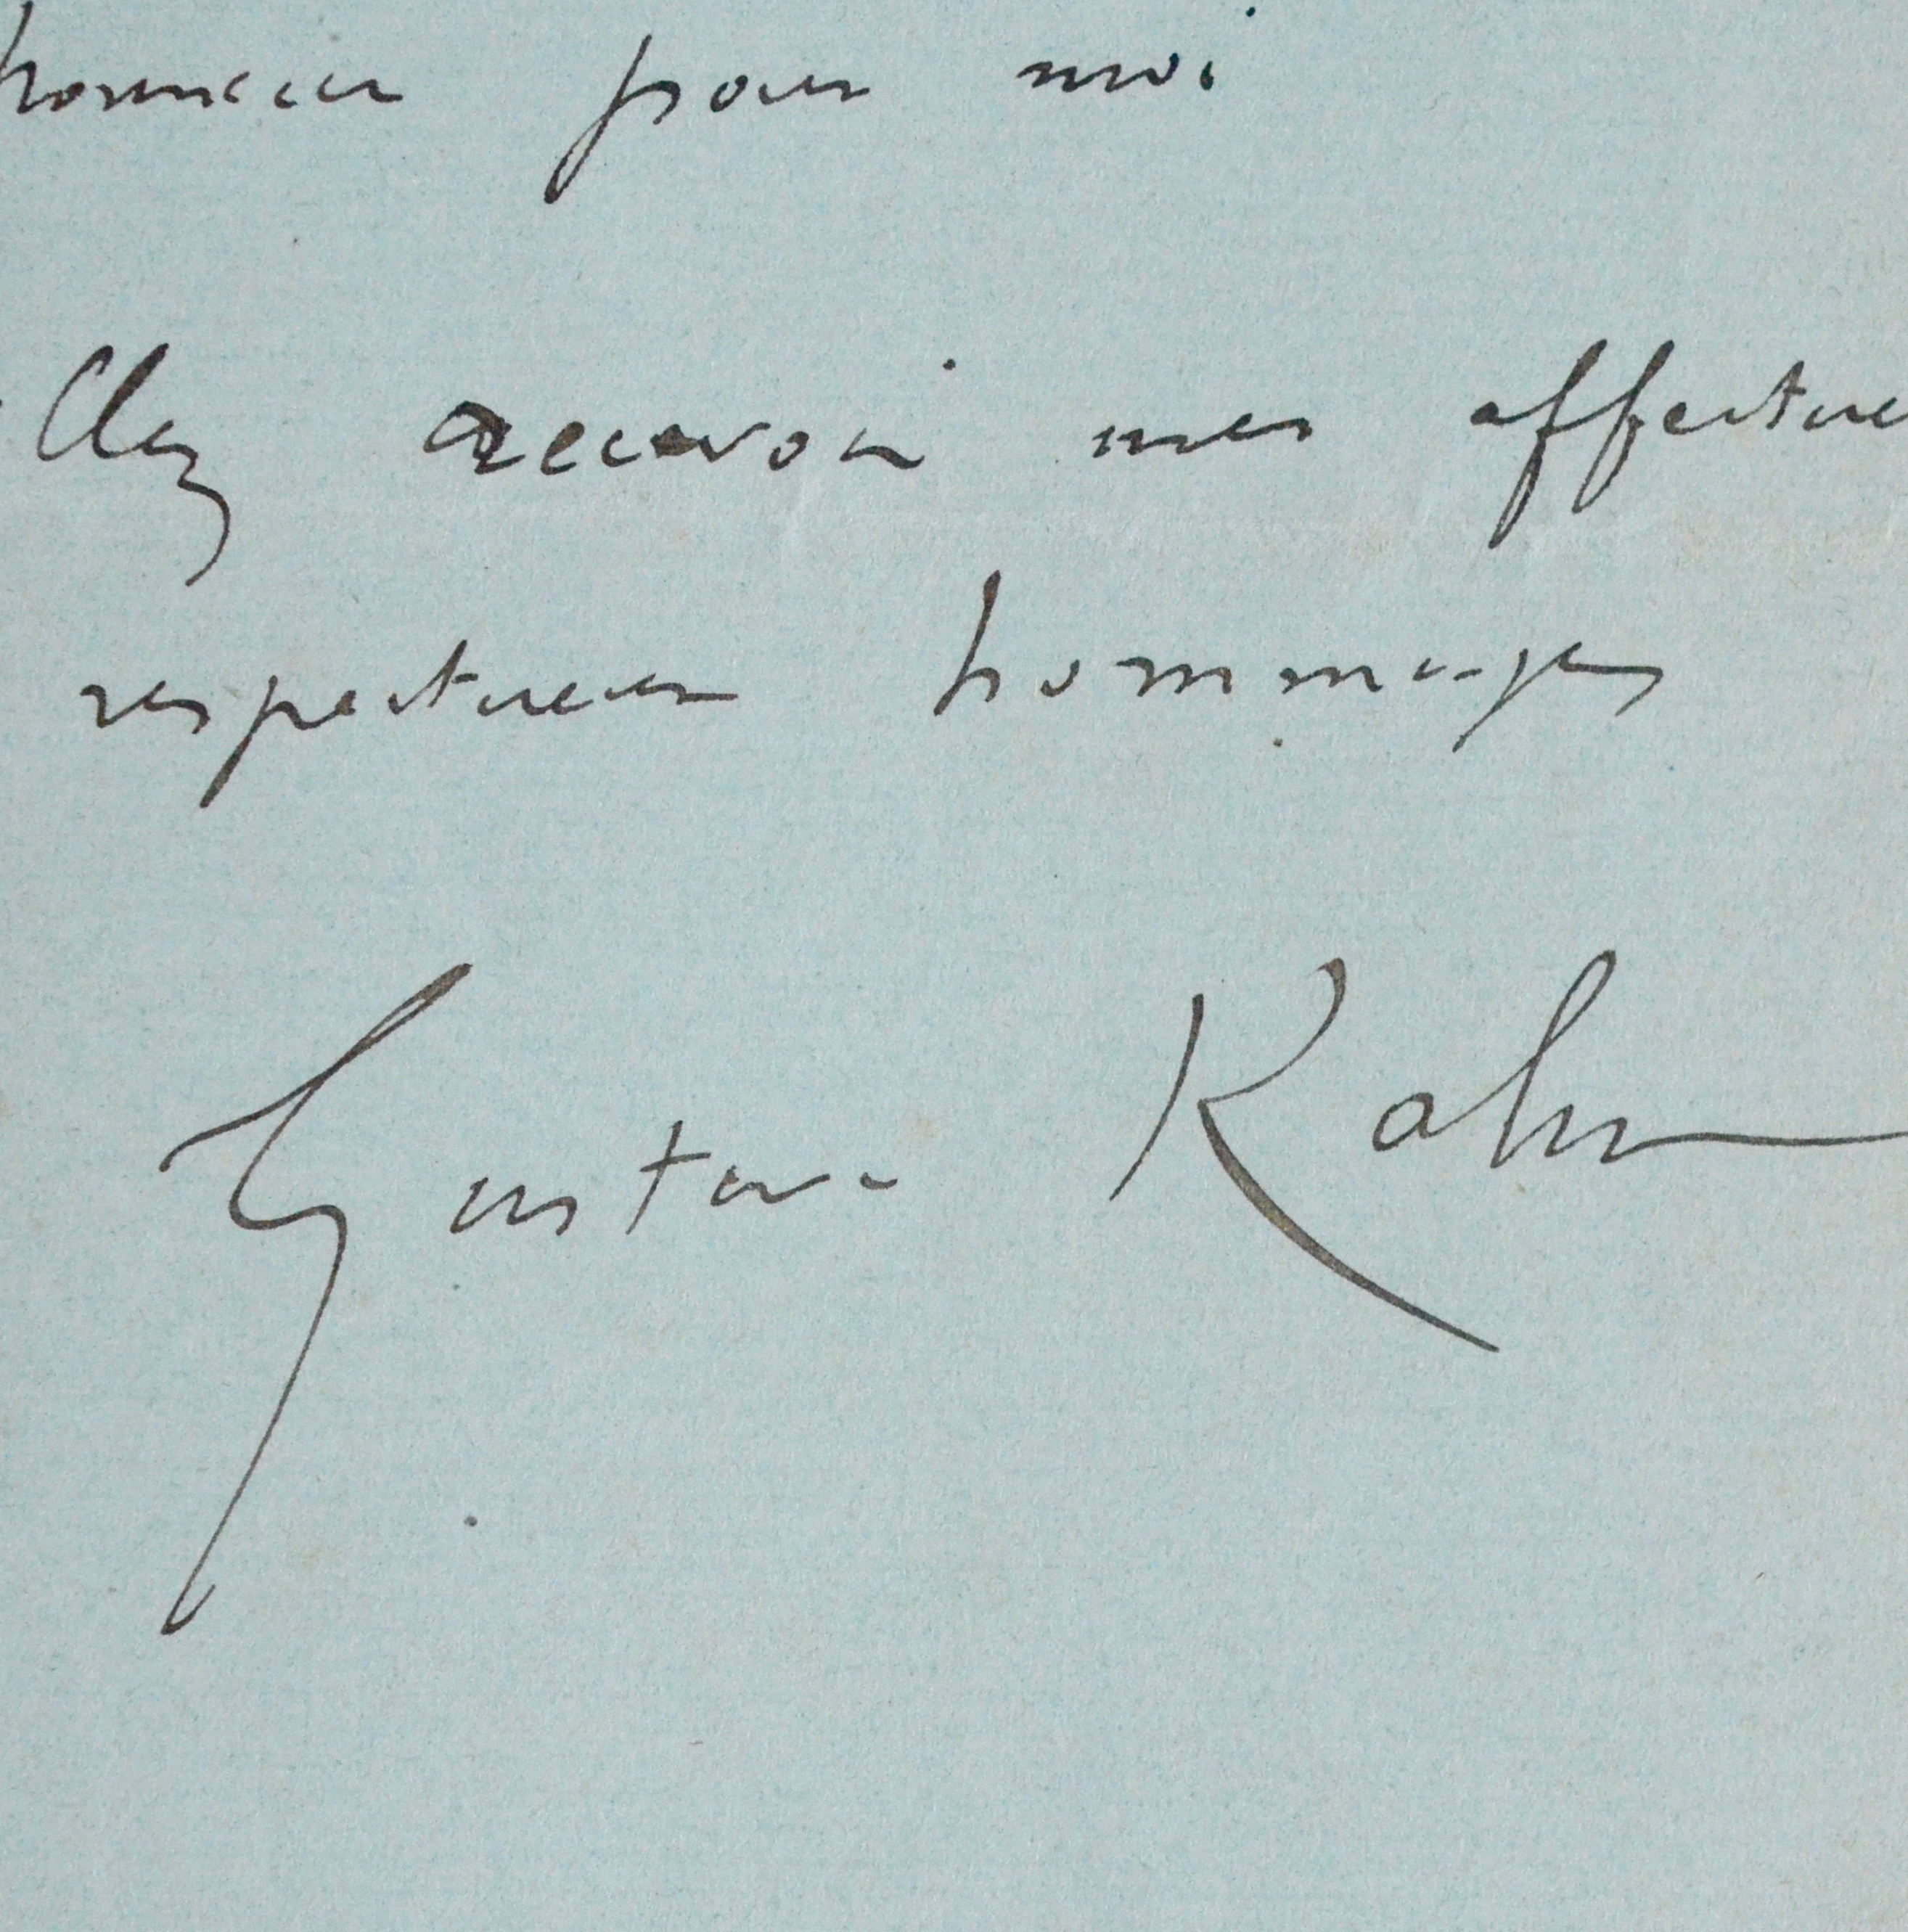 honneur pour moi
illez recevoir mes affectue
respectueux hommages
Gustave Kahn